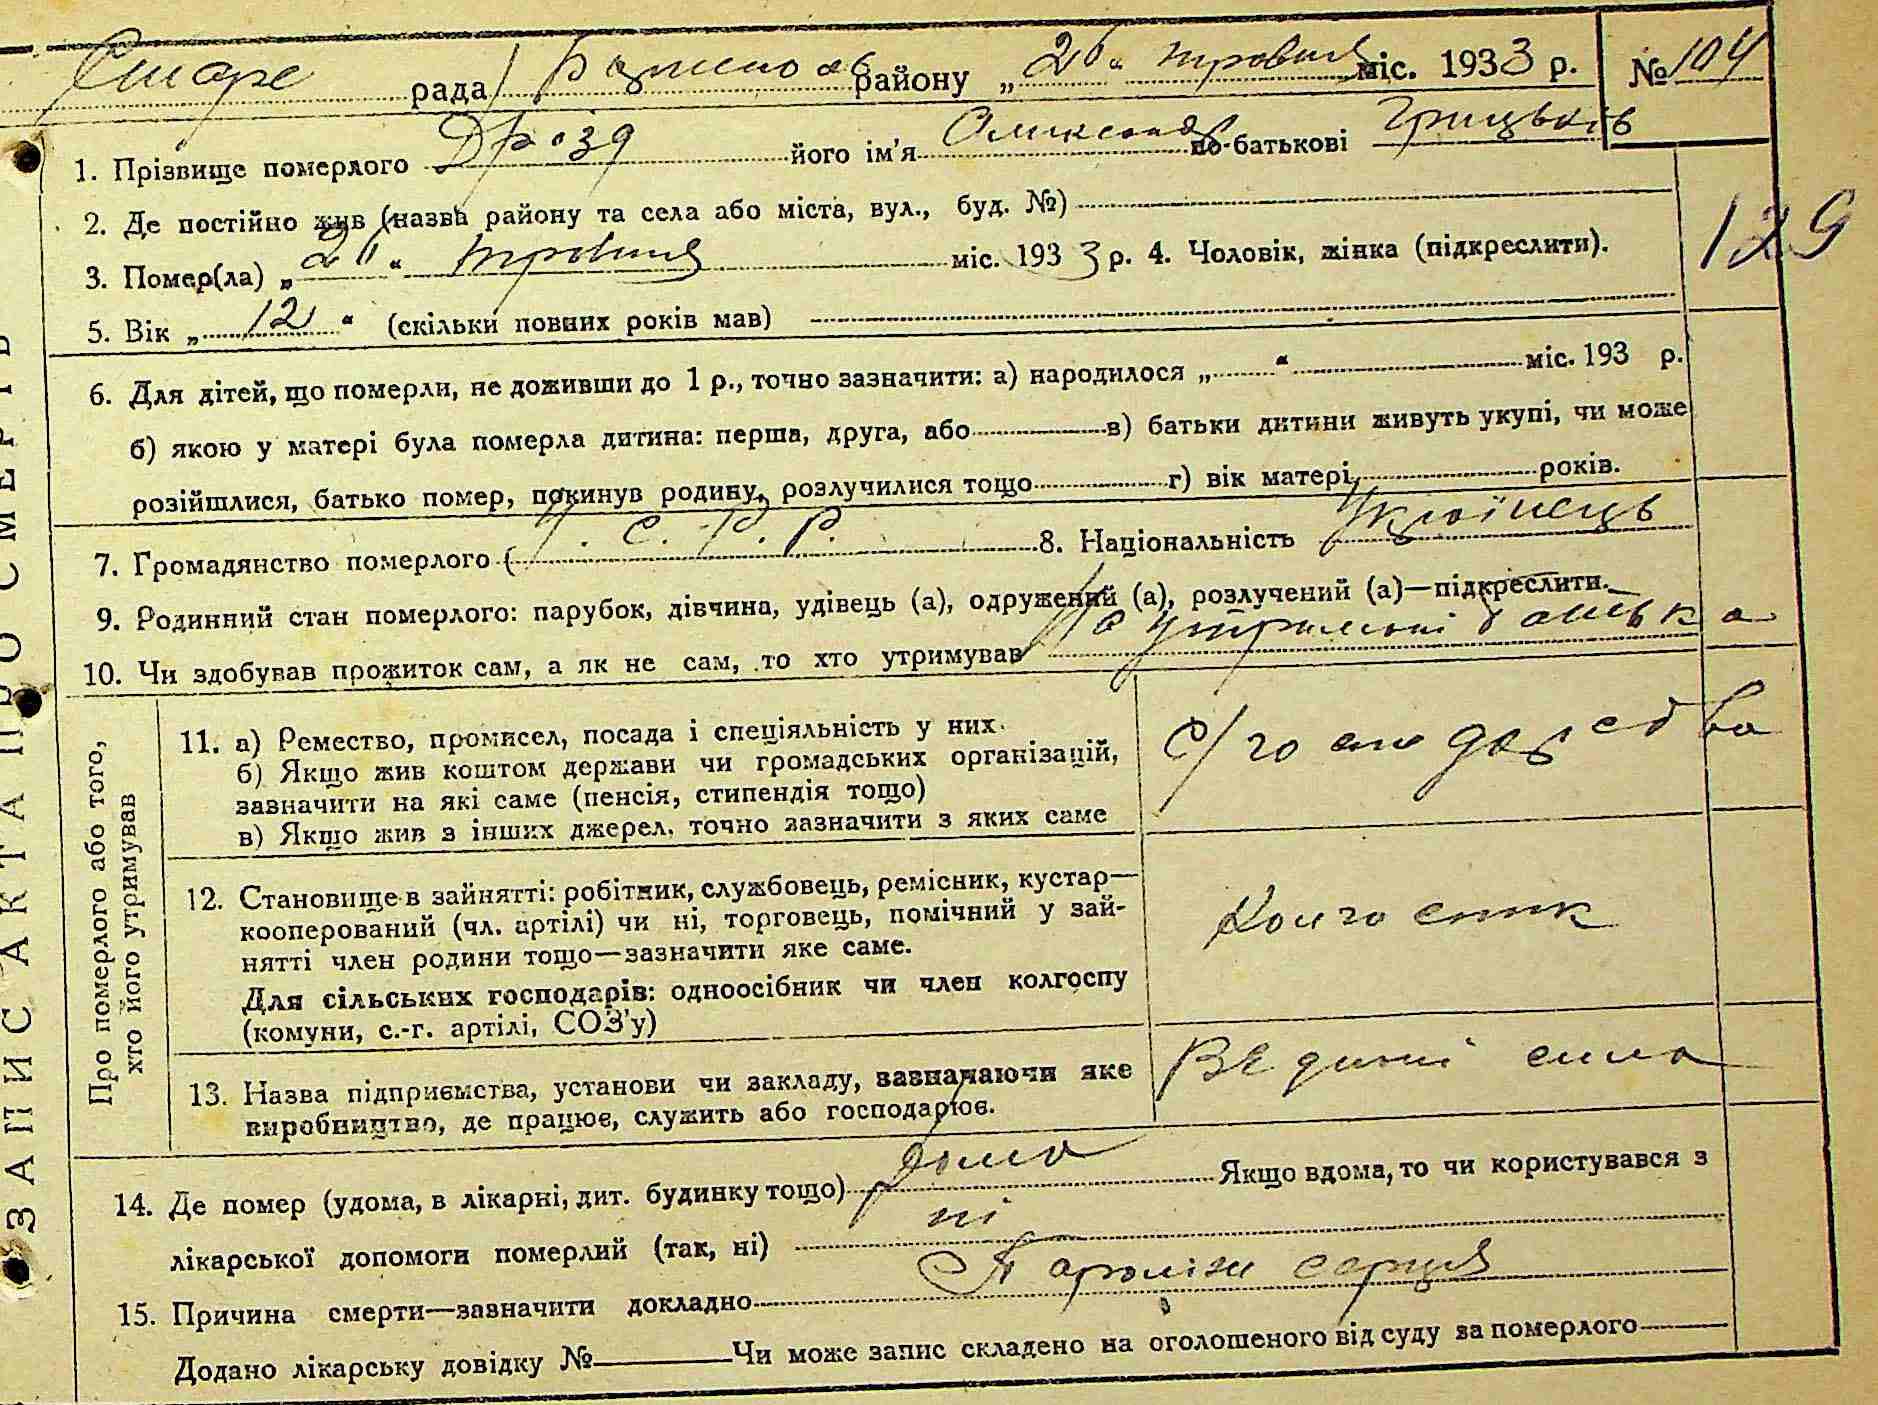 Старе рада районо 26 травня міс. 1933 р. № 104
1. Прізвище померлого Дрозд його ім'я Олександр по-батькові Грицьків
2. Де постійно жив (назва району та села або міста, вул., буд. №)
129
3. Помер(ла) „26“ травня міс. 1933 р. 4. Чоловік, жінка (підкреслити).
5. Вік „12“ (скільки повних років мав)
6. Для дітей, що померли, не доживши до 1 р., точно зазначити: а) народилося „ “ міс. 193 р.
б) якою у матері була померла дитина: перша, друга, або в) батьки дитини живуть укупі, чи може
розійшлися, батько помер, покинув родину, розлучилися тощо г) вік матері, років.
7. Громадянство померлого У.С.Р.Р. 8. Національність Українець
9. Родинний стан померлого: парубок, дівчина, удівець (а), одружений (а), розлучений (а)—підкреслити.
10. Чи здобував прожиток сам, а як не сам, то хто утримував На утриманні батька
ЗАПИС АКТА ПРО СМЕРТЬ
Про померлого або того,
хто його утримував
11. а) Ремество, промисел, посада і спеціяльність у них.
б) Якщо жив коштом держави чи громадських організацій,
зазначити на які саме (пенсія, стипендія тощо)
в) Якщо жив з інших джерел, точно зазначити з яких саме
С/господарства
12. Становище в зайнятті: робітник, службовець, ремісник, кустар—
кооперований (чл. артілі) чи ні, торговець, помічний у зай-
нятті член родини тощо—зазначити яке саме.
Для сільських господарів: одноосібник чи член колгоспу
(комуни, с.-г. артілі, СОЗ'у)
Колгоспник
13. Назва підприємства, установи чи закладу, зазначаючи яке
виробництво, де працює, служить або господарює.
сила
14. Де помер (удома, в лікарні, дит. будинку тощо) дома Якщо вдома, то чи користувався з
лікарської допомоги померлий (так, ні) ні
15. Причина смерти—зазначити докладно Параліж серця
Додано лікарську довідку № Чи може запис складено на оголошеного від суду за померлого